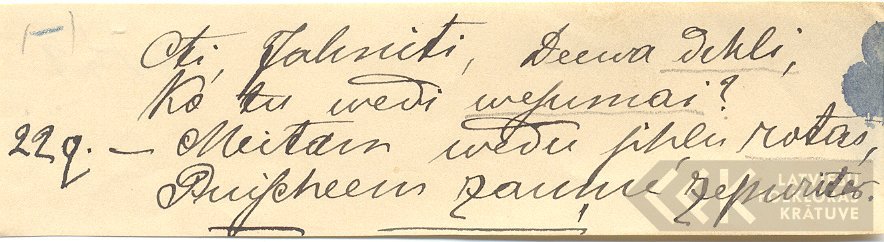 (—)
Ai, Jahniti, Deewa dehli,
Ko tu wedi wesumai?
229. — Meitam wedu sihlu rotas,
Puischeem zaunu zepuriti.
LATVIEŠU
FOLKLORAS
KRĀTUVE